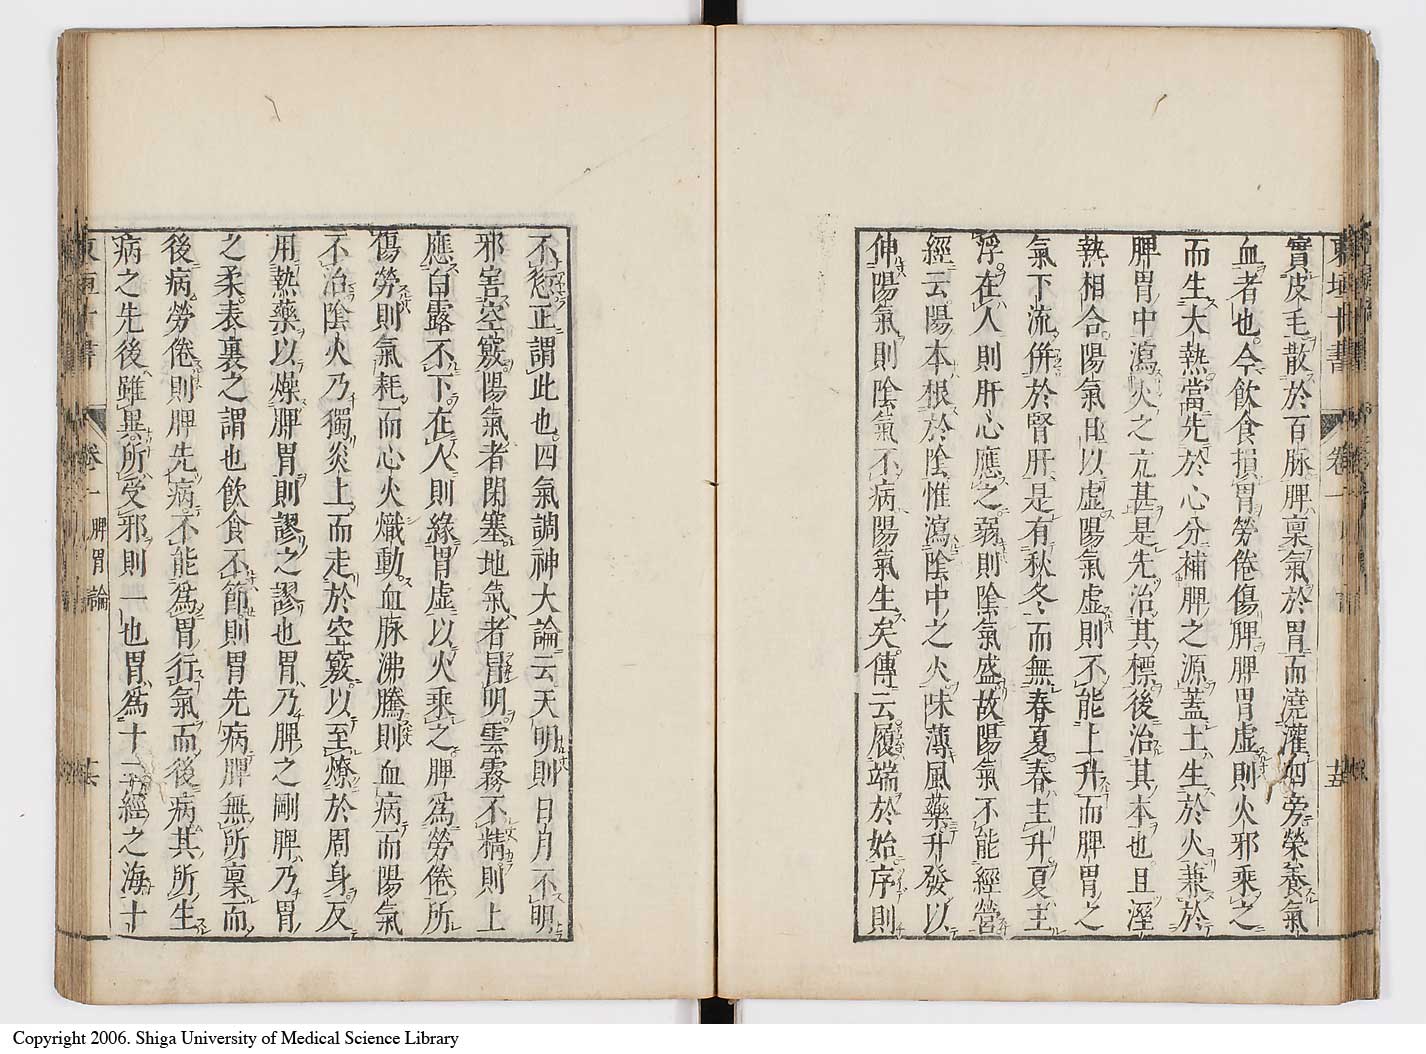 東垣十書 卷一 十五
實皮毛散於百脉脾稟氣於胃而澆灌四旁榮養氣
血者也今飲食損胃勞倦傷脾脾胃虛則火邪乘之
而生大熱當先於心分補脾之源蓋土生於火兼於
脾胃中瀉火之亢甚是先治其標後治其本也且溼
熱相合陽氣日以虛陽氣虛則不能上升而脾胃之
氣下流併於腎肝是有秋冬而無春夏春主升夏主
浮在人則肝心應之弱則陰氣盛故陽氣不能經營
經云陽本根於陰惟瀉陰中之火味薄風藥升發以
伸陽氣則陰氣不病陽氣生矣傳云履端於始序則
不愆正謂此也四氣調神大論云天明則日月不明
邪害空竅陽氣者閉塞地氣者冒明雲霧不精則上
應白露不下在人則緣胃虛以火乘之脾爲勞倦所
傷勞則氣耗而心火熾動血脉沸騰則血病而陽氣
不治陰火乃獨炎上而走於空竅以至燎於周身反
用熱藥以燥脾胃則謬之謬也胃乃脾之剛脾乃胃
之柔表裏之謂也飲食不節則胃先病脾無所稟而
後病勞倦則脾先病不能爲胃行氣而後病其所生
病之先後雖異所受邪則一也胃爲十二經之海十
東垣十書 卷一 脾胃論 十六
Copyright 2006. Shiga University of Medical Science Library